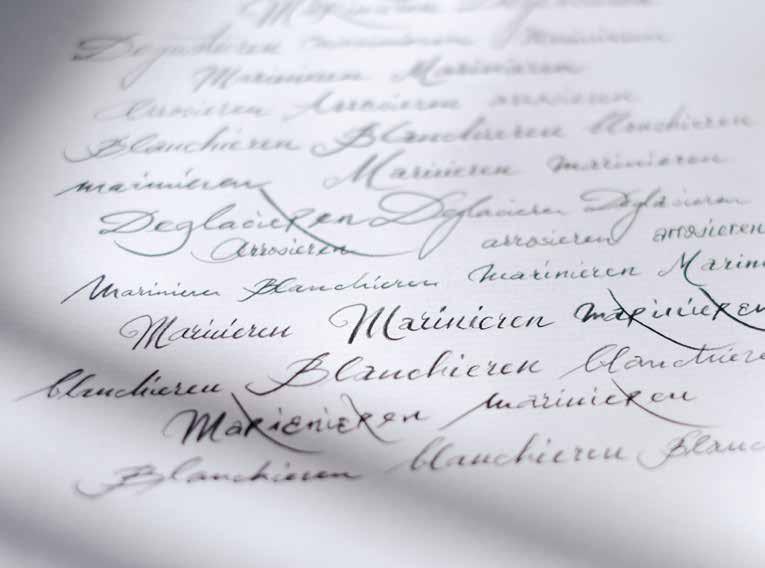 Marinieren
marinieren
Marinieren Marinieren
Arrosieren Arrosieren arrosieren
Blanchieren Blanchieren blanchieren
marinieren Marinieren marinieren
Deglacieren Deglacieren Deglacieren
Arrosieren arrosieren arrosieren
Marinieren Blanchieren marinieren Marin
Marinieren Marinieren marinieren
blanchieren Blanchieren blanchiere
Marienieren marinieren
Blanchieren blanchieren Blanc